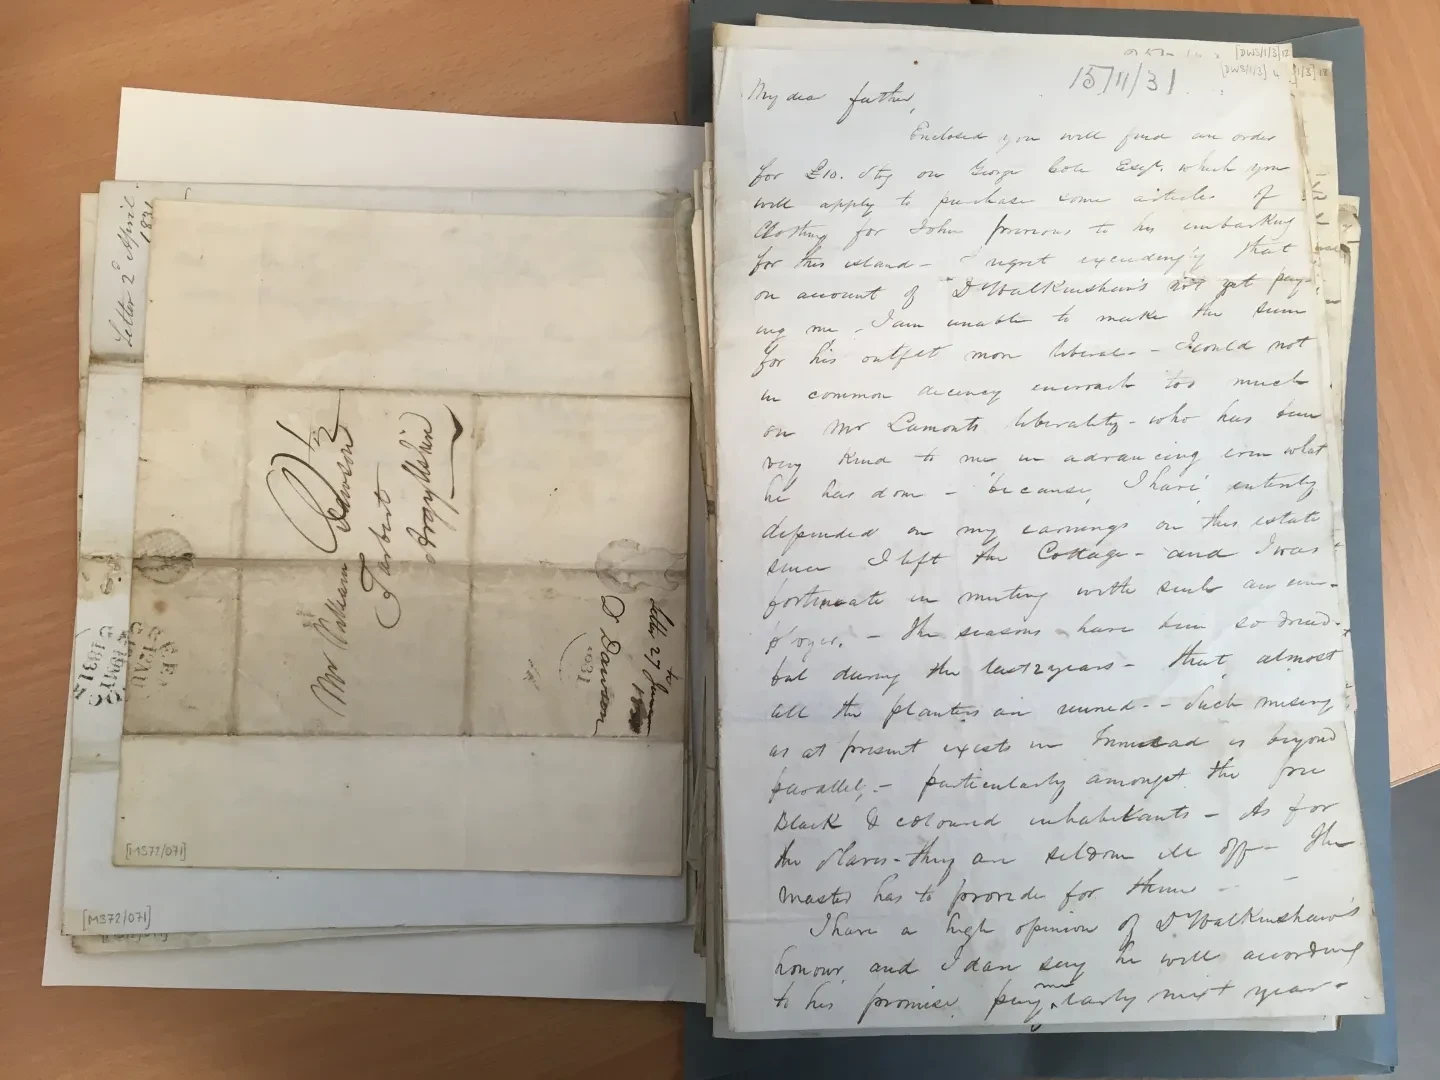 Letter 2d April
1831
Mr William Dawson
Tarbert
Argyllshire
Letter 27
D Dawson
1831
[MS72/071]
[MS72/071]
[DWS/1/3]
15/11/31
My dear father,
Enclosed you will find an order
for £10. Stg on George Cole Esqr. which you
will apply to purchase some articles of
Clothing for John previous to his embarking
for this island – I regret exceedingly that
on account of Dr Walkinshaw's not yet pay-
ing me – I am unable to make the sum
for his outfit more liberal – – I could not
in common decency encroach too much
on Mr Lamonts liberality – who has been
very kind to me in advancing even what
he has done – because, I have entirely
depended on my earnings on this estate
since I left the Cottage – and I was
fortunate in meeting with such an em-
ployer, – The seasons have been so dread-
ful during the last 2 years – that almost
all the planters are ruined – – Such misery
as at present exists in Trinidad is beyond
parallel, – particularly amongst the free
Black & coloured inhabitants – As for
the Slaves – they are seldom ill off – The
master has to provide for them –
I have a high opinion of Dr Walkinshaw's
honour, and I dare say he will according
to his promise pay me early next year –